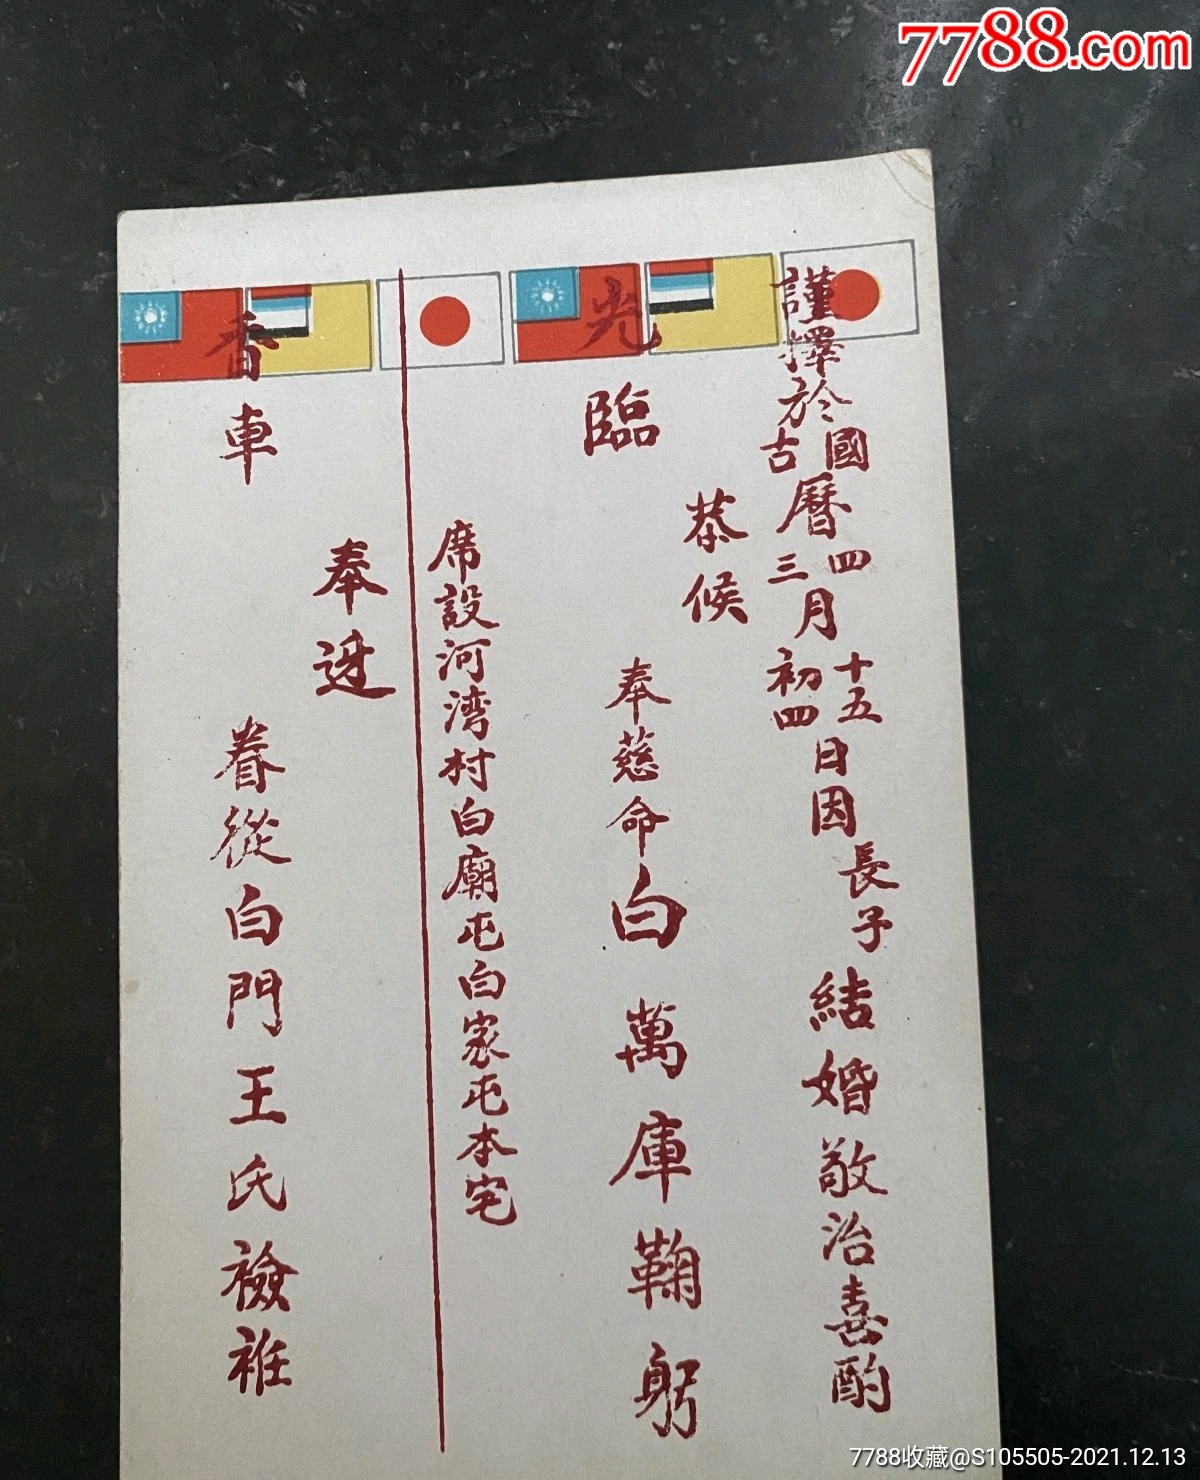 7788.com
謹擇於國古曆四三月十五初四日因長子結婚敬治喜酌
恭候
光臨
奉慈命白萬庫鞠躬
席設河湾村白廟屯白家屯本宅
奉迓
香車
眷從白門王氏襝袵
7788收藏@S105505-2021.12.13